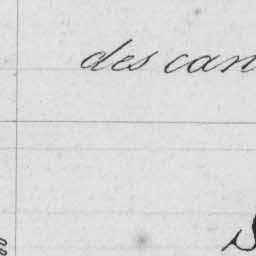 des can